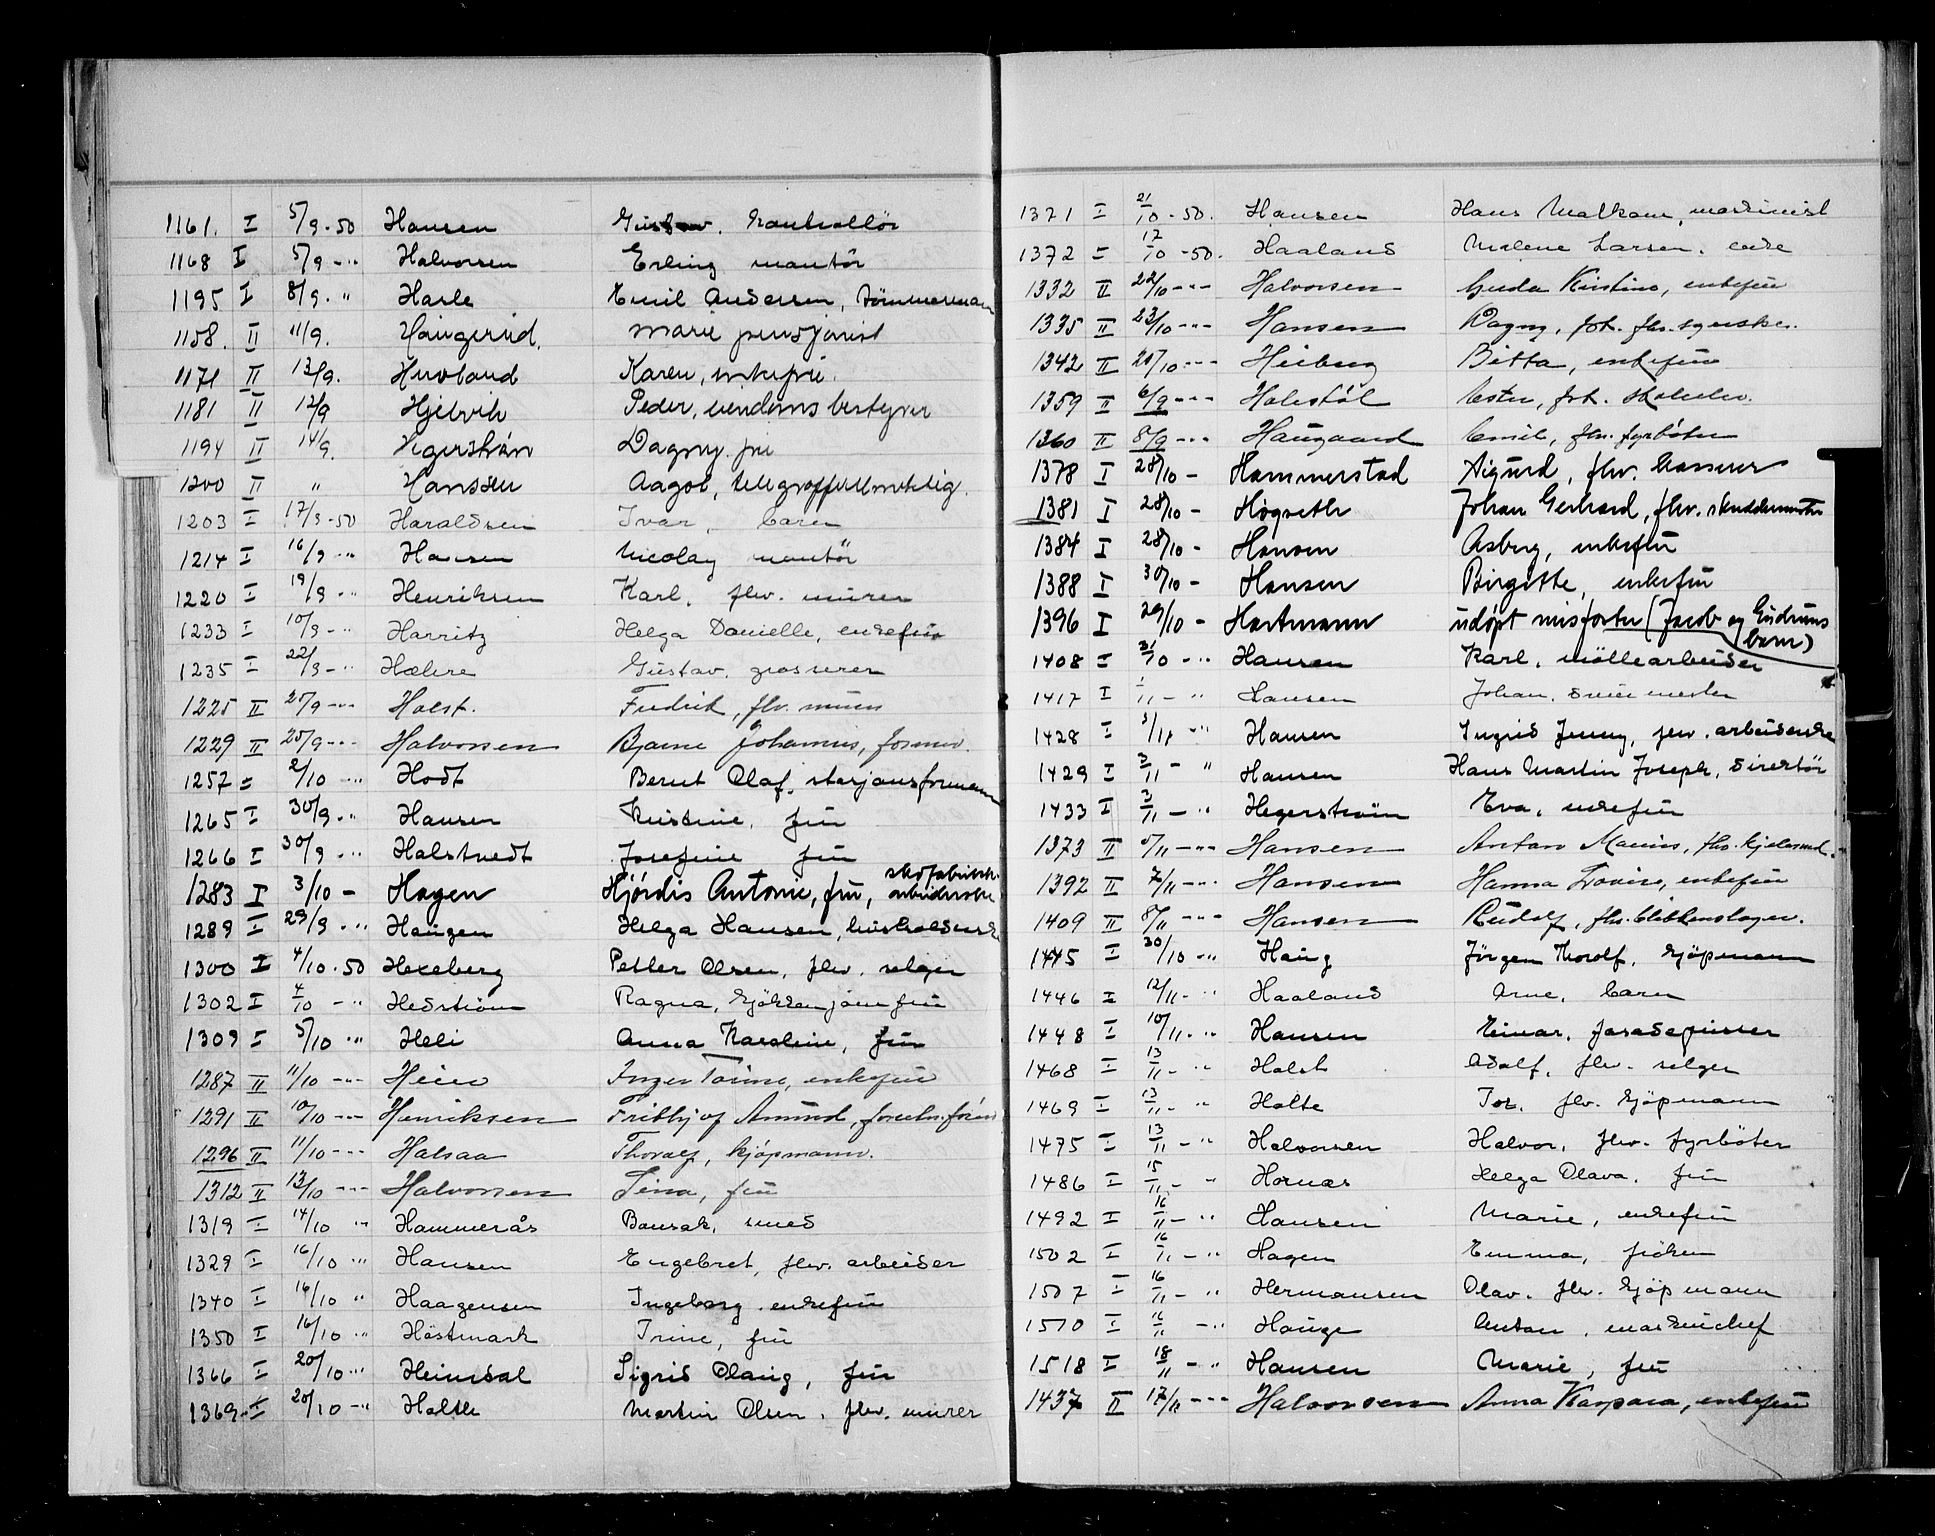 1161. I 5/9-50 Hansen Gustav, kontrollör
1168 I 5/9-" Halvorsen Erling montör
1195 I 8/9. " Harle Emil Andersen, tömmermann
1158. II 11/9. Haugerud. Marie pensjonist
1171 II 13/9. Huvland Karen, enkefru.
1181 II 12/9 Hjelvik Peder, eiendoms bestyrer
1194 II 14/9. Hegerström Dagny. fru
1200 II " Hanssen Aagot, telegraffullmektig.
1203 I 17/9-50 Haraldsen Ivar, baren
1214 I 16/9 -" Hansen Nicolay montör
1220 I 19/9 -" Henriksen Karl, fhv. murer
1233 I 10/9 -" Harritz Helga Danielle, enkefru
1235 I 22/9 -" Hæhre Gustav. grosserer
1225 II 25/9 -" Holst. Fredrik, fhv. murer
1229 II 25/9 -" Halvorsen Bjarne Johannes, former.
1257 = 2/10 -" Hodt Bernt Olaf, stasjonsformann
1265 I 30/9 -" Hansen Kristine, fru
1266 I 30/9 -" Halstvedt Josefine fru
1283 I 3/10 - Hagen Hjördis Antonie, fru, skofabrikk-arbeiderske
1289 I 29/9 -" Haugen Helga Hansen, husholderske
1300 I 4/10-50 Hexeberg Petter Olsen, fhv. selger
1302 I 4/10 -" Hedström Ragna, kjökkenjomfru
1309 I 5/10 -" Heli Anna Karoline, fru
1287 II 11/10 -" Heier Inger Torine, enkefru
1291 II 10/10 -" Henriksen Fridtjof Amund,
1296 II 11/10 -" Halsaa Thoralf, kjøpmann.
1312 II 13/10 -" Halvorsen Lina, fru
1319 I 14/10 -" Hammerås Bonsak, smed
1329 I 16/10 -" Hansen Engebret, fhv. arbeider
1340 I 16/10 " Haagensen Ingeborg. enkefru
1350 I 16/10 -" Höstmark Irine, fru
1366 I 20/10 -" Heimdal Sigrid Olaug, fru
1369 - I 20/10 -" Holth Martin Olsen, fhv. murer
1371 I 21/10-50. Hansen Hans Malkom, maskinist
1372 = 17/10-50. Haaland Malene Larsen, enke
1332 II 22/10 -" Halvorsen Guda Kirstine, enkefru
1335 II 23/10 -" Hansen Dagny, frk. fhv. syerske.
1342 II 20/10 -" Heiberg Betta, enkefru
1359 II 6/9 -" Holestöl Ester, frk. skoleelev.
1360 II 8/9 -" Haugaard Emil, fhv. fyrbøter
1378 I 28/10 - Hammerstad Sigurd, fhv. kasserer
1381 I 28/10 - Høgseth Johan Gerhard, fhv.
1384 I 28/10 - Hansen Asberg, enkefru
1388 I 30/10 - Hansen Birgitte, enkefru
1396 I 29/10 - Hartmann udøpt misfoster (Jacob og Gudruns barn)
1408 = 31/10 -" Hansen Karl, möllearbeider
1417 I 1/11 - " Hansen Johan. dreiemester
1428 I 3/11 -" Hansen Ingrid Jenny, fhv. arbeiderske
1429 I 3/11 - " Hansen Hans Martin Joseph, direktör
1433 I 3/11 - " Hegerström Eva, enkefru
1373 II 5/11 -" Hansen Anton Marius, fhv. kjelesmed.
1392 II 7/11 -" Hansen Hanna Lovise, enkefru
1409 II 8/11 -" Hansen Rudolf, fhv. blikkenslager.
1445 I 30/10 -" Haug Jörgen Thorolf, kjöpmann
1446 I 12/11 -" Haaland Arne, baren
1448 I 10/11 -" Hansen Einar, fasadepusser
1468 I 13/11 - " Holst Adolf, fhv. selger
1469 I 13/11 - " Holte Tor, fhv. kjöpmann
1475 I 13/11 - " Halvorsen Halvor, fhv. fyrböter
1486 I 15/11 - " Hornæs Helga Olava, fru
1492 I 16/11 - " Hansen Marie, enkefru
1502 I 16/11 - " Hagen Emma, fröken
1507 I 16/11 - " Hermansen Olav. fhv. kjöpmann
1510 I 16/11 -" Hauge Anton, maskinchef
1518 I 18/11 - " Hansen Marie, fru
1437 II 17/11 -" Halvorsen Anna Kaspara, enkefru